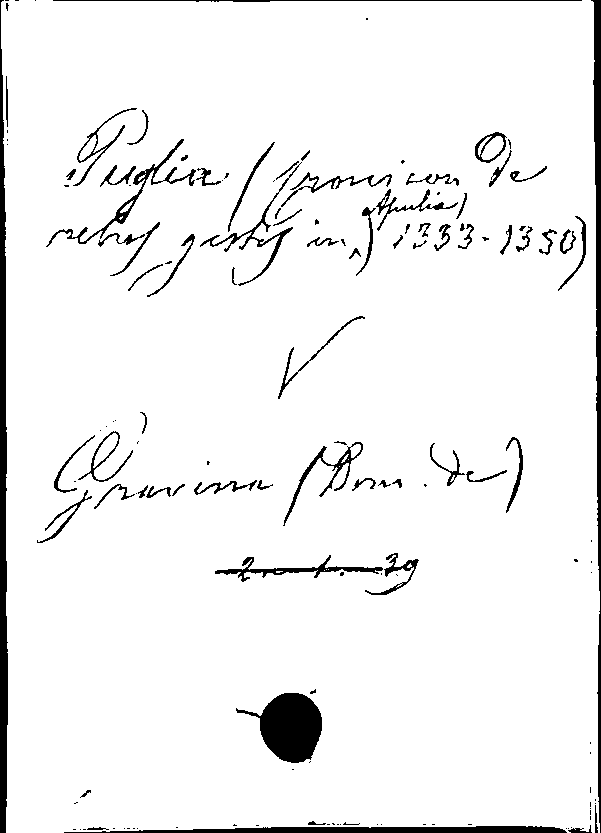 Puglia (cronicon De
rebus gestis in Apulia) 1333-1350)
V
Gravina (Dom. de)
2. 1. 39